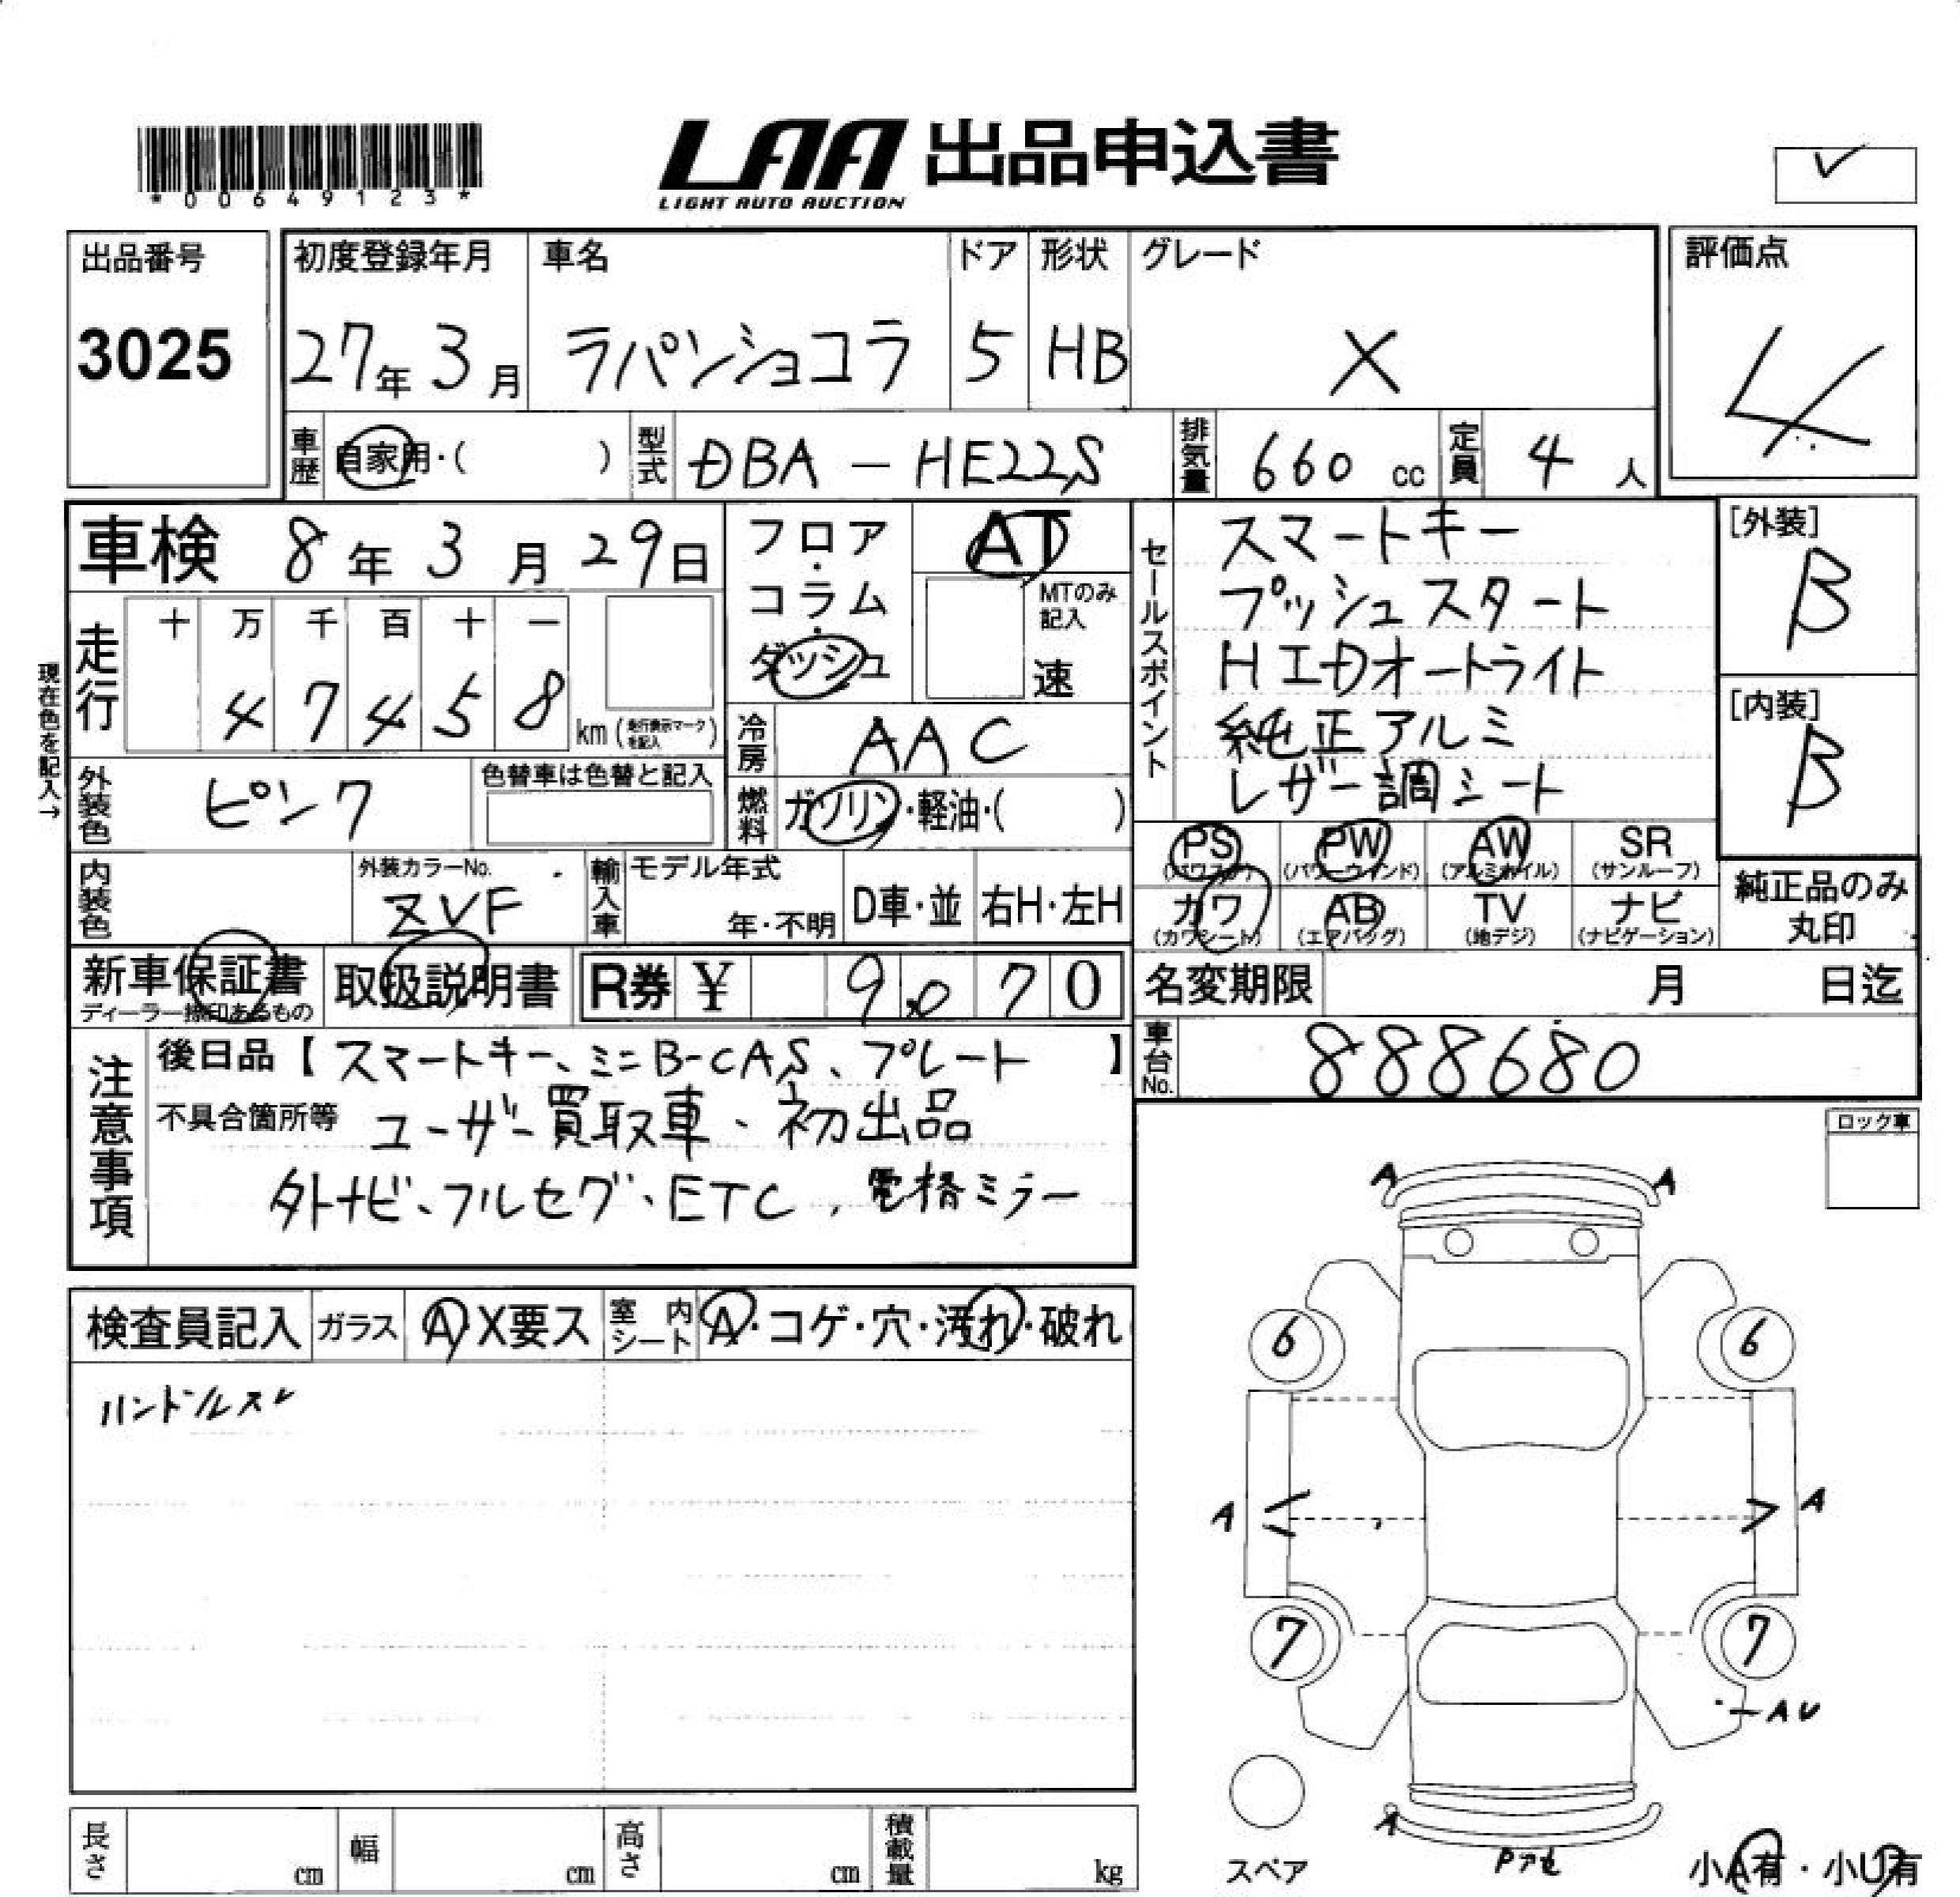 *00649123*
LAA 出品申込書
LIGHT AUTO AUCTION
✓
出品番号
3025
初度登録年月
27年 3月
車名
ラパンショコラ
ドア
5
形状
HB
グレード
X
評価点
4
車歴 自家用・( )
型式 DBA - HE22S
排気量 660 cc
定員 4 人
車検 8年 3月 29日
フロア・コラム・ダッシュ
AT
MTのみ記入
速
現在色を記入→
走行
十 万 千 百 十 一
4 7 4 5 8
km (走行表示マークを記入)
冷房 AAC
外装色 ピンク
色替車は色替と記入
燃料 ガソリン・軽油・( )
内装色
外装カラーNo.
ZVF
輸入車
モデル年式
年・不明
D車・並
右H・左H
新車保証書
ディーラー捺印あるもの
取扱説明書
R券 ¥ 9.070
セールスポイント
スマートキー
プッシュスタート
HIDオートライト
純正アルミ
レザー調シート
[外装]
B
[内装]
B
PS PW AW SR
(パワステ) (パワーウインド) (アルミホイル) (サンルーフ)
カワ AB TV ナビ
(カワシート) (エアバッグ) (地デジ) (ナビゲーション)
純正品のみ
丸印
名変期限 月 日迄
車台No. 888680
注意事項
後日品【スマートキー、ミニB-CAS、プレート】
不具合箇所等 ユーザー買取車、初出品
外ナビ、フルセグ、ETC、電格ミラー
ロック車
検査員記入 ガラス A・X要ス 室内シート A・コゲ・穴・汚れ・破れ
ハンドルスレ
A A
6 6
A A
7 7
AU
A
Pアセ
スペア
小A有・小U有
長さ cm
幅 cm
高さ cm
積載量 kg